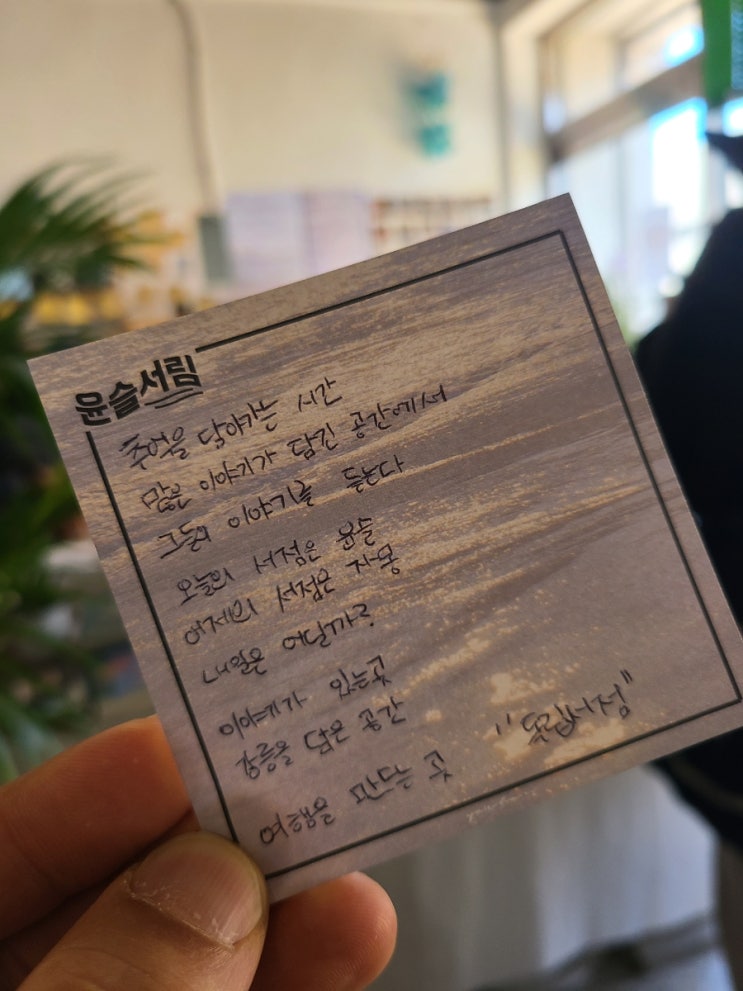 윤슬서림
추억을 담아가는 시간
많은 이야기가 담긴 공간에서
그들의 이야기를 듣는다
오늘의 서점은 윤슬
어제의 서점은 자몽
내일은 어딜까?
이야기가 있는곳
강릉을 담은 공간
여행을 만드는 곳
"독립서점"